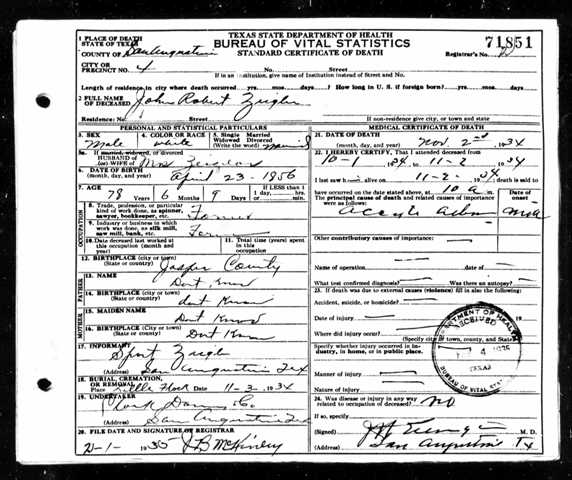 TEXAS STATE DEPARTMENT OF HEALTH
BUREAU OF VITAL STATISTICS
STANDARD CERTIFICATE OF DEATH
71851
Registrar's No.
1 PLACE OF DEATH
STATE OF TEXAS
COUNTY OF San Augustine
CITY OR
PRECINCT NO. 4 No. Street
If in an institution, give name of institution instead of Street and No.
Length of residence in city where death occurred yrs. mos. days? How long in U. S. if foreign born? yrs. mos. days
2 FULL NAME
OF DECEASED John Robert Zeigler
Residence: No. Street
If non-residence, give city, or town and state
PERSONAL AND STATISTICAL PARTICULARS
3. SEX 4. COLOR OR RACE 5. Single Married Widowed Divorced (Write the word)
Male white married
5a. If married, widowed, or divorced
HUSBAND OF
(or) WIFE OF Mrs Zeigler
6. DATE OF BIRTH
(month, day, and year) April 23 - 1856
7. AGE Years Months Days If LESS than 1 day, Hrs Min
78 6 9
OCCUPATION
8. Trade, profession, or particular kind of work done, as spinner, sawyer, bookkeeper, etc. Farmer
9. Industry or business in which work was done, as silk mill, saw mill, bank, etc. Farm
10. Date deceased last worked at this occupation (month and year)
11. Total time (years) spent in this occupation
12. BIRTHPLACE (city or town)
(State or country) Jasper County
FATHER
13. NAME Dont Know
14. BIRTHPLACE (City or town)
(State or country) dont Know
MOTHER
15. MAIDEN NAME Dont Know
16. BIRTHPLACE (City or town)
(State or country) Dont Know
17. INFORMANT Sport Zeigler
Address San Augustine Tex
18. BURIAL, CREMATION, OR REMOVAL
Place Little Flock Date 11-3-1934
19. UNDERTAKER
Address San Augustine Tex
20. FILE DATE AND SIGNATURE OF REGISTRAR
2-1-1935 J B McKinley
MEDICAL CERTIFICATE OF DEATH
21. DATE OF DEATH
(month, day, and year) Nov. 2nd 1934
22. I HEREBY CERTIFY, That I attended deceased from
10-1 1934 11-2 1934
I last saw h alive on 11-2- 1934 death is said to
have occurred on the date stated above, at 10 a m.
The principal cause of death and related causes of importance were as follows: Date of onset
Other contributory causes of importance:
Name of operation date of
What test confirmed diagnosis? Was there an autopsy?
23. If death was due to external causes (violence) fill in also the following:
Accident, suicide, or homicide?
Date of injury 19
Where did injury occur?
(Specify city or town, county, and State)
Specify whether injury occurred in industry, in home, or in public place.
Manner of injury
Nature of injury
DEPARTMENT OF HEALTH
RECEIVED
4 1935
TEXAS
BUREAU OF VITAL STAT
24. Was disease or injury in any way related to occupation of deceased? no
If so, specify
(Signed) M. D.
San Augustine Tx